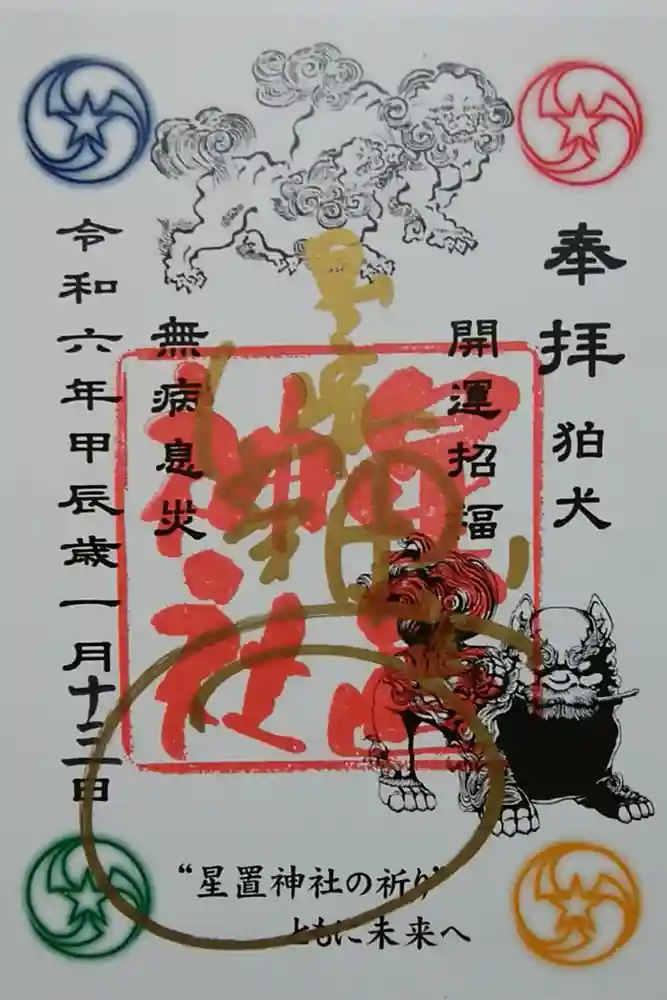 奉拝 狛犬
開運招福
星置神社
無病息災
令和六年甲辰歳一月十二日
“星置神社の祈り”
ともに未来へ